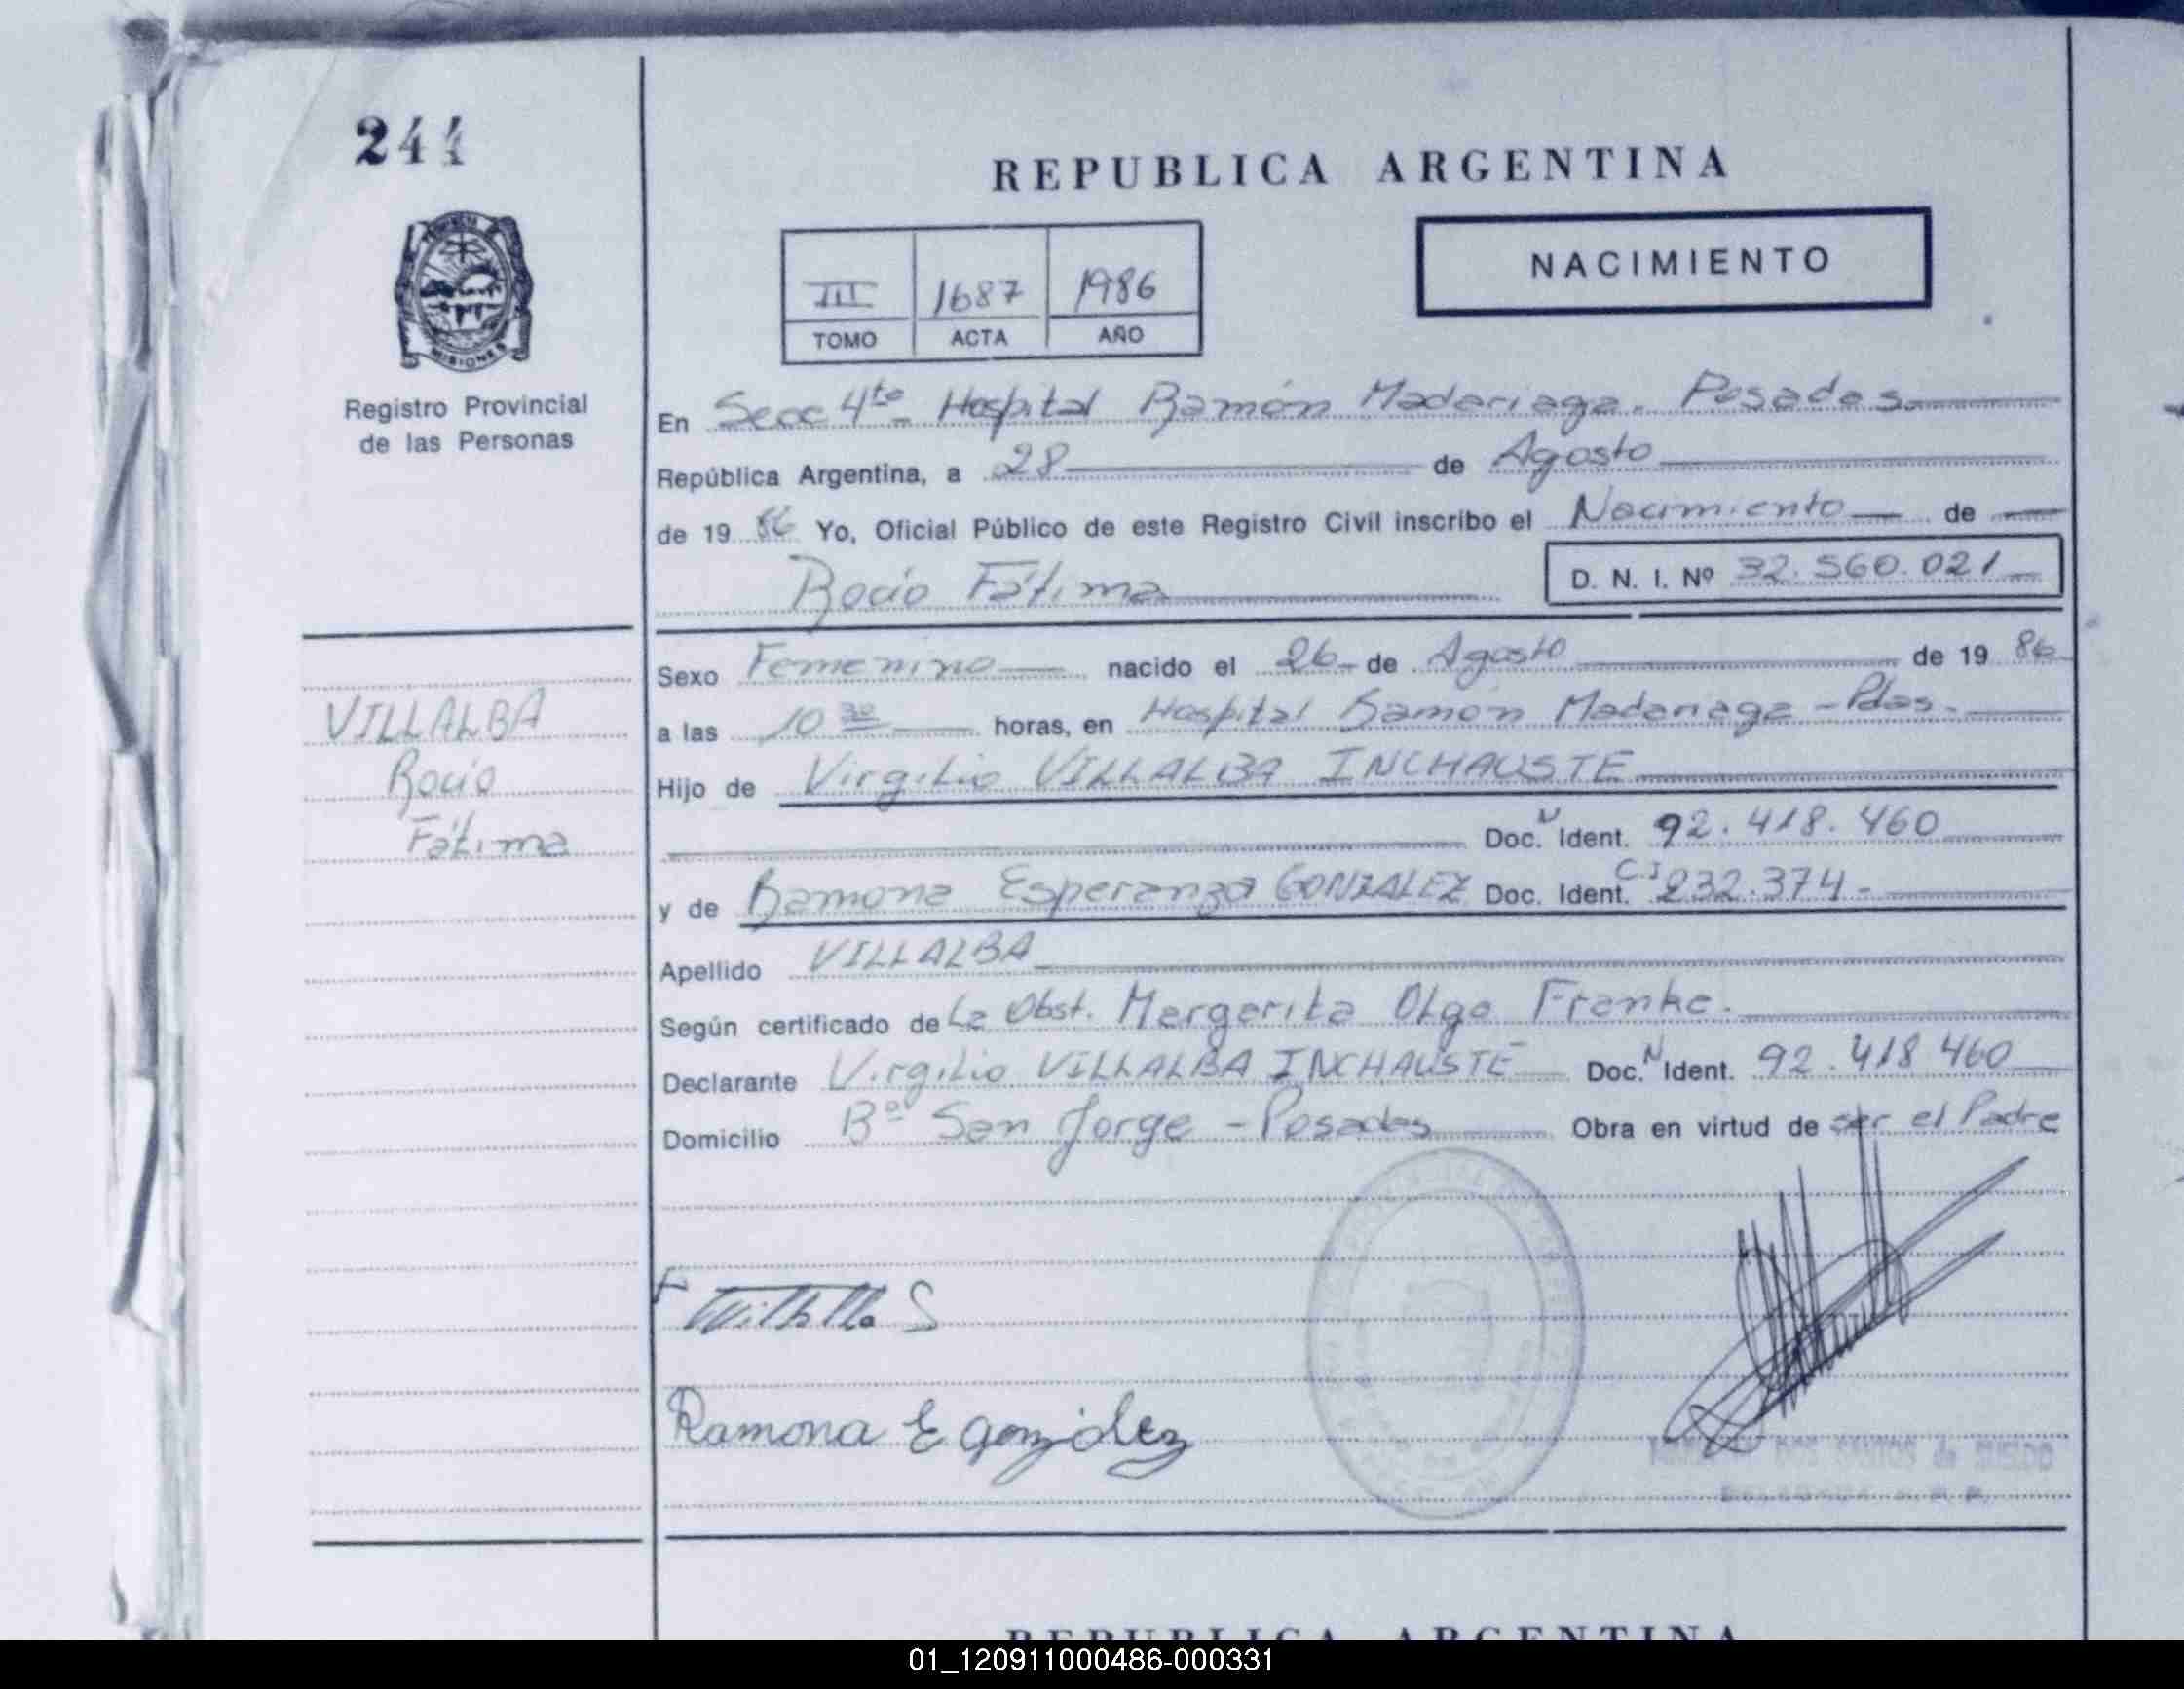 244
REPUBLICA ARGENTINA
III 1687 1986
TOMO ACTA AÑO
NACIMIENTO
MISIONES
Registro Provincial
de las Personas
En Secc 4ta Hospital Ramón Madariaga. Posadas.
República Argentina, a 28 de Agosto
de 19 86 Yo, Oficial Público de este Registro Civil inscribo el Nacimiento de
Rocío Fátima D. N. I. Nº 32.560.021
Sexo Femenino nacido el 26 de Agosto de 19 86
a las 10 30 horas, en Hospital Ramón Madariaga - Pdas.
Hijo de Virgilio VILLALBA INCHAUSTE
Doc. N Ident. 92.418.460
y de Ramona Esperanza GONZALEZ Doc. Ident. C.I 232.374.-
Apellido VILLALBA
Según certificado de La Obst. Margarita Olga Franke.
Declarante Virgilio VILLALBA INCHAUSTE Doc. N Ident. 92.418 460
Domicilio Bº San Jorge - Posadas Obra en virtud de ser el Padre
VILLALBA
Rocío
Fátima
Ramona E gonzález
DOS SANTOS de SUELDO
REPUBLICA ARGENTINA
01_120911000486-000331